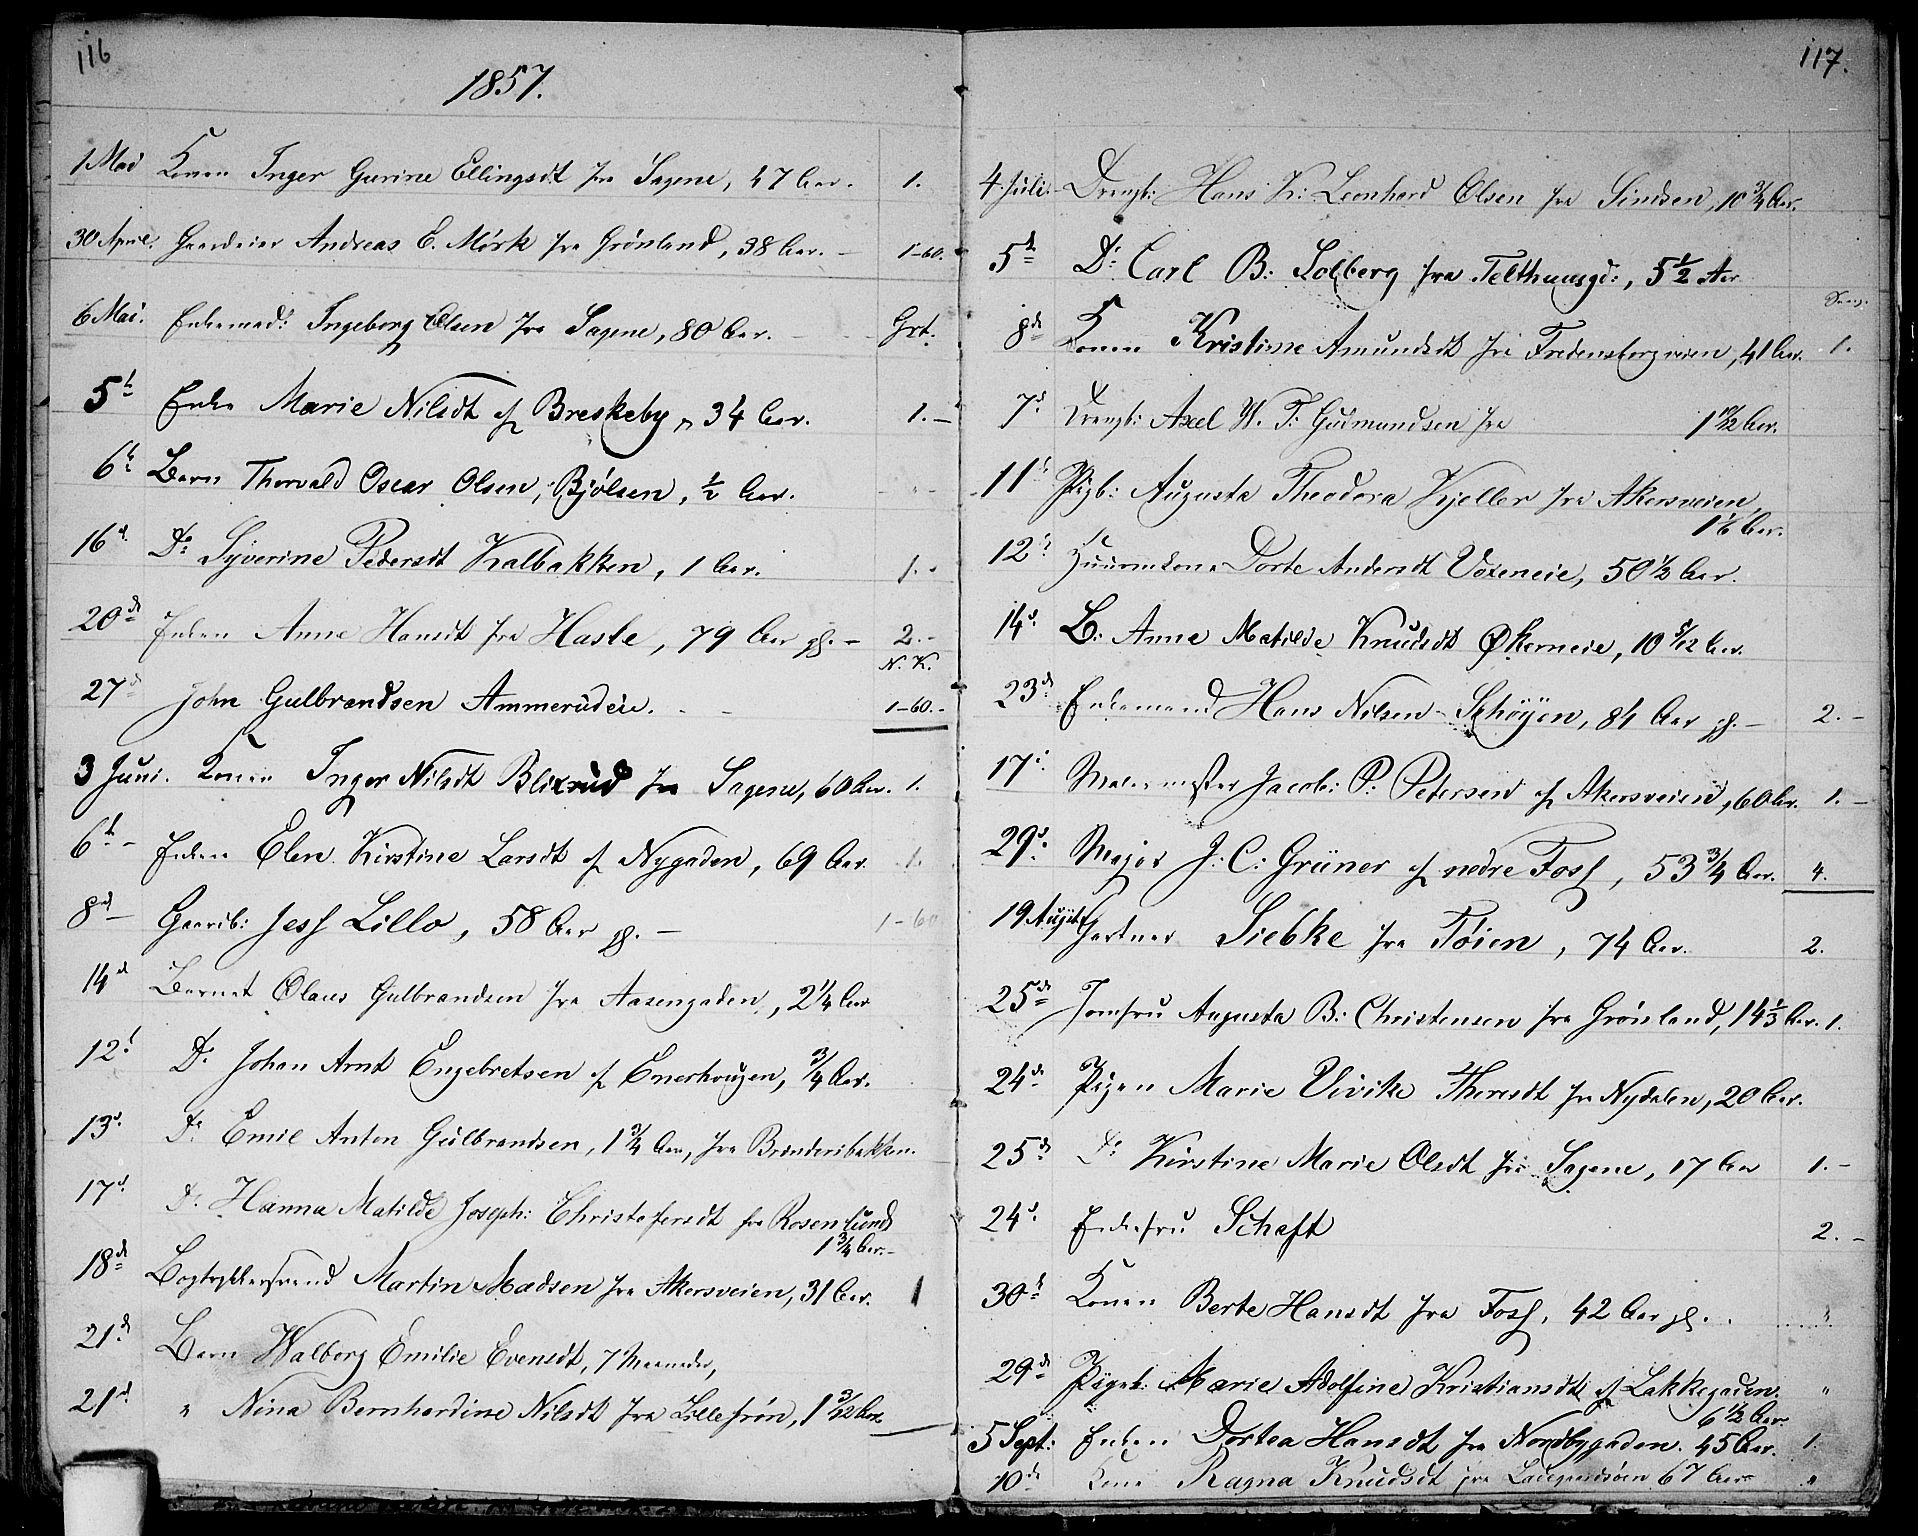 116
1857.
1 Mai Konen Inger Gurine Ellingsdt fra Sagene, 47 Aar. 1.
30 April. Gaardeier Andreas E. Mörk fra Grönland, 38 Aar. – 1–60.
6 Mai. Enkemad: Ingeborg Olsen fra Sagene, 80 Aar. Grt:
5t Enke Marie Nilsdt af Breskeby, 34 Aar. 1.–
6t Barn Thorvald Oscar Olsen, Bjölsen, ½ Aar.
16d Do Syverine Pedersdt Kalbakken, 1 Aar. 1.
20de Enken Anne Hansdt fra Hasle, 79 Aar gl. – 2.–
N. K.
27d John Gulbrandsen Ammerudeie. 1–60.–
3 Juni. Konen Inger Nilsdt Blixrud fra Sagene, 60 Aar. 1.
6t – Enken Elen Kirstine Larsdt af Nygaden, 69 Aar. 1.
8d – Gaardb: Jess Lillo, 58 Aar gl. – 1–60
14d Barnet Olaus Gulbrandsen fra Aasengaden, 2¼ Aar
12t Do Johan Arnt Engebretsen af Enerhougen, ¾ Aar.
13d Do Emil Anton Gulbrandsen, 1¾ Aar, fra Brænderibakken.
17d Do Hanna Matilde Joseph: Christofersdt fra Rosenlund
1¾ Aar. –
18de Bogtrykkersvend Martin Madsen fra Akersveien, 31 Aar. 1
21de Barn Walborg Emilie Evensdt, 7 Maaneder,
21d " Nina Bernhardine Nilsdt fra Lille frön, 1 3/12 Aar.
117.
4 Juli. Drengb: Hans K: Leonhard Olsen fra Sindsen, 10¾ Aar.
5t Do Carl B: Solberg fra Telthuusgd:, 5½ Aar
8de Konen Kristine Amundsdt fra Fredensborgveien, 41 Aar. 1.
7d. Drengb: Axel W. T: Gudmundsen fra 1 10/12 Aar.
11t Pigb: Augusta Theodora Kjeller fra Akersveien,
1⅙ Aar.
12t Huusmkone Dorte Andersdt Voxeneie, 50½ Aar.
14d B: Anne Matilde Knudsdt Økerneie, 10 5/12 Aar.
23de Enkemand Hans Nilsen Schøyen, 84 Aar gl. – 2.–
17d Malermester Jacob: P: Petersen af Akersveien, 60 Aar. 1.–
29d. Major J: C: Grüner af nedre Foss, 53¾ Aar. 4.
19 August Gartner Siebke fra Töien, 74 Aar. 2.
25de Jomfru Augusta B: Christensen fra Grönland, 14⅓ Aar. 1.
24de Pigen Marie Vivike Thoresdt fra Nydalen, 20 Aar.
25de Do Kirstine Marie Olsdt fra Sagene, 17 Aar 1.–
24d. Enkefru Schaft 2.–
30t Konen Berte Hansdt fra Foss, 42 Aar gl. "
29de Pigeb: Marie Adolfine Kristiansdt af Lakkegaden. "
6½ Aar
5 Sept: Enken Dortea Hansdt fra Nordbygaden. 45 Aar. 1.
10de Kone Ragna Knudsdt fra 67 Aar "